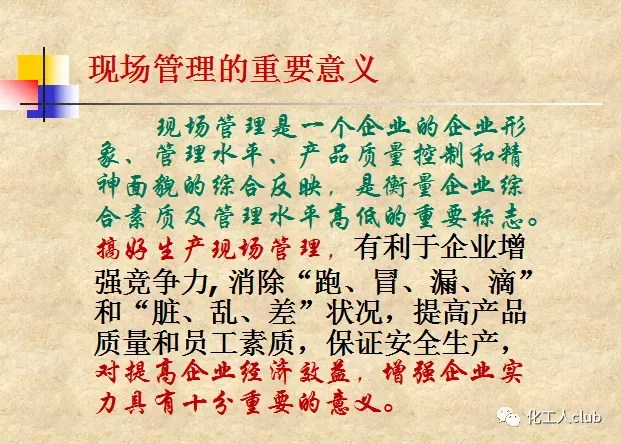 现场管理的重要意义
现场管理是一个企业的企业形
象、管理水平、产品质量控制和精
神面貌的综合反映，是衡量企业综
合素质及管理水平高低的重要标志。
搞好生产现场管理，有利于企业增
强竞争力，消除“跑、冒、漏、滴”
和“脏、乱、差”状况，提高产品
质量和员工素质，保证安全生产，
对提高企业经济效益，增强企业实
力具有十分重要的意义。
化工人club